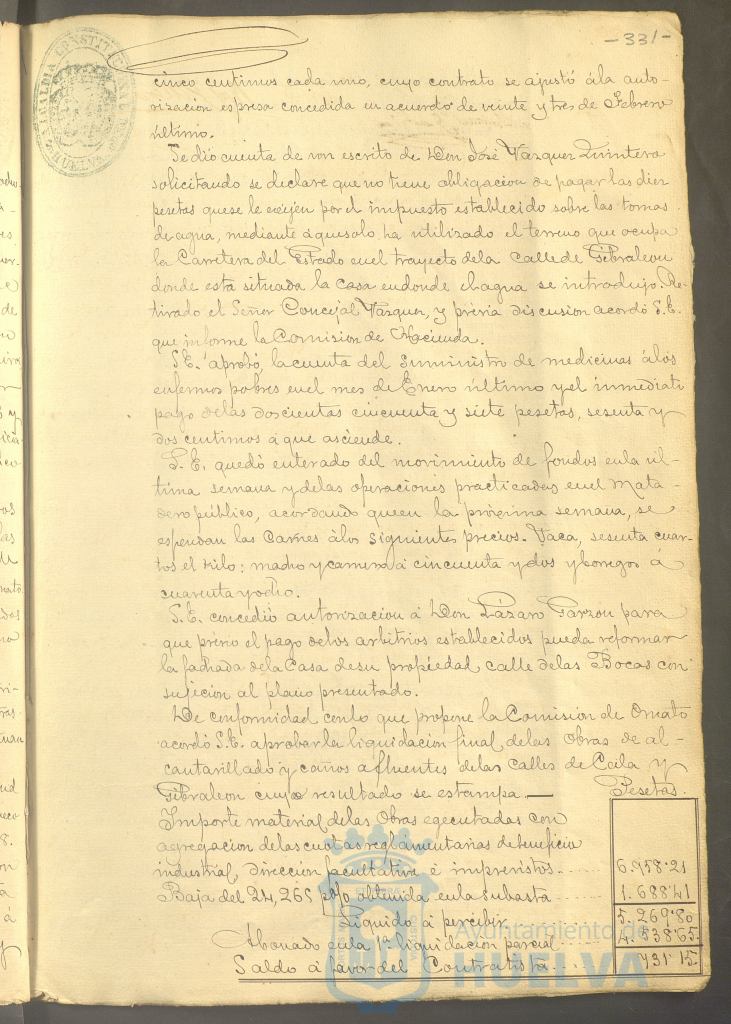 -331-
ALCALDIA CONSTITUCIONAL DE HUELVA
cinco centimos cada uno, cuyo contrato se ajustó á la auto-
rización espresa concedida en acuerdo de veinte y tres de Febrero
último.
Se dió cuenta de un escrito de Don José Vazquez Quintero
solicitando se declare que no tiene obligacion de pagar las diez
pesetas que se le exijen por el impuesto establecido sobre las tomas
de agua, mediante á que solo ha utilizado el terreno que ocupa
la Carretera del Estado en el trayecto de la calle de Gibraleon
donde está situada la casa en donde el agua se introdujo. Re-
tirado el Señor Concejal Vazquez, y prévia discusion acordó S.E.
que informe la Comision de Hacienda.
S.E. aprobó, la cuenta del suministro de medicinas á los
enfermos pobres en el mes de Enero último y el inmediato
pago de las doscientas cincuenta y siete pesetas, sesenta y
dos centimos á que asciende.
S.E. quedó enterado del movimiento de fondos en la úl-
tima semana y de las operaciones practicadas en el Mata-
dero público, acordando que en la próxima semana, se
espendan las Carnes á los siguientes precios. Vaca, sesenta cuar-
tos el kilo: macho y carnero á cincuenta y dos y borregos á
cuarenta y ocho.
S.E. concedió autorizacion á Don Lázaro Garzon para
que prévio el pago de los arbitrios establecidos pueda reformar
la fachada de la Casa de su propiedad calle de las Bocas con
sujicion al plano presentado.
De conformidad con lo que propone la Comision de Ornato
acordó S.E. aprobar la liquidacion final de las Obras de al-
cantarillado y caños afluentes de las calles de Cala y
Gibraleon cuyo resultado se estampa.— Pesetas.
Importe material de las Obras egecutadas con
agregacion de las cuotas reglamentarias de beneficio
industrial, dirección facultativa é imprevistos.. 6.958.21
Baja del 24,265 p% obtenida en la subasta.... 1.688.41
Liquido á percibir.... 5.269.80
Abonado en la 1ª liquidacion parcial.... 4.538.65.
Saldo á favor del Contratista.... 731.15.
Ayuntamiento de
HUELVA